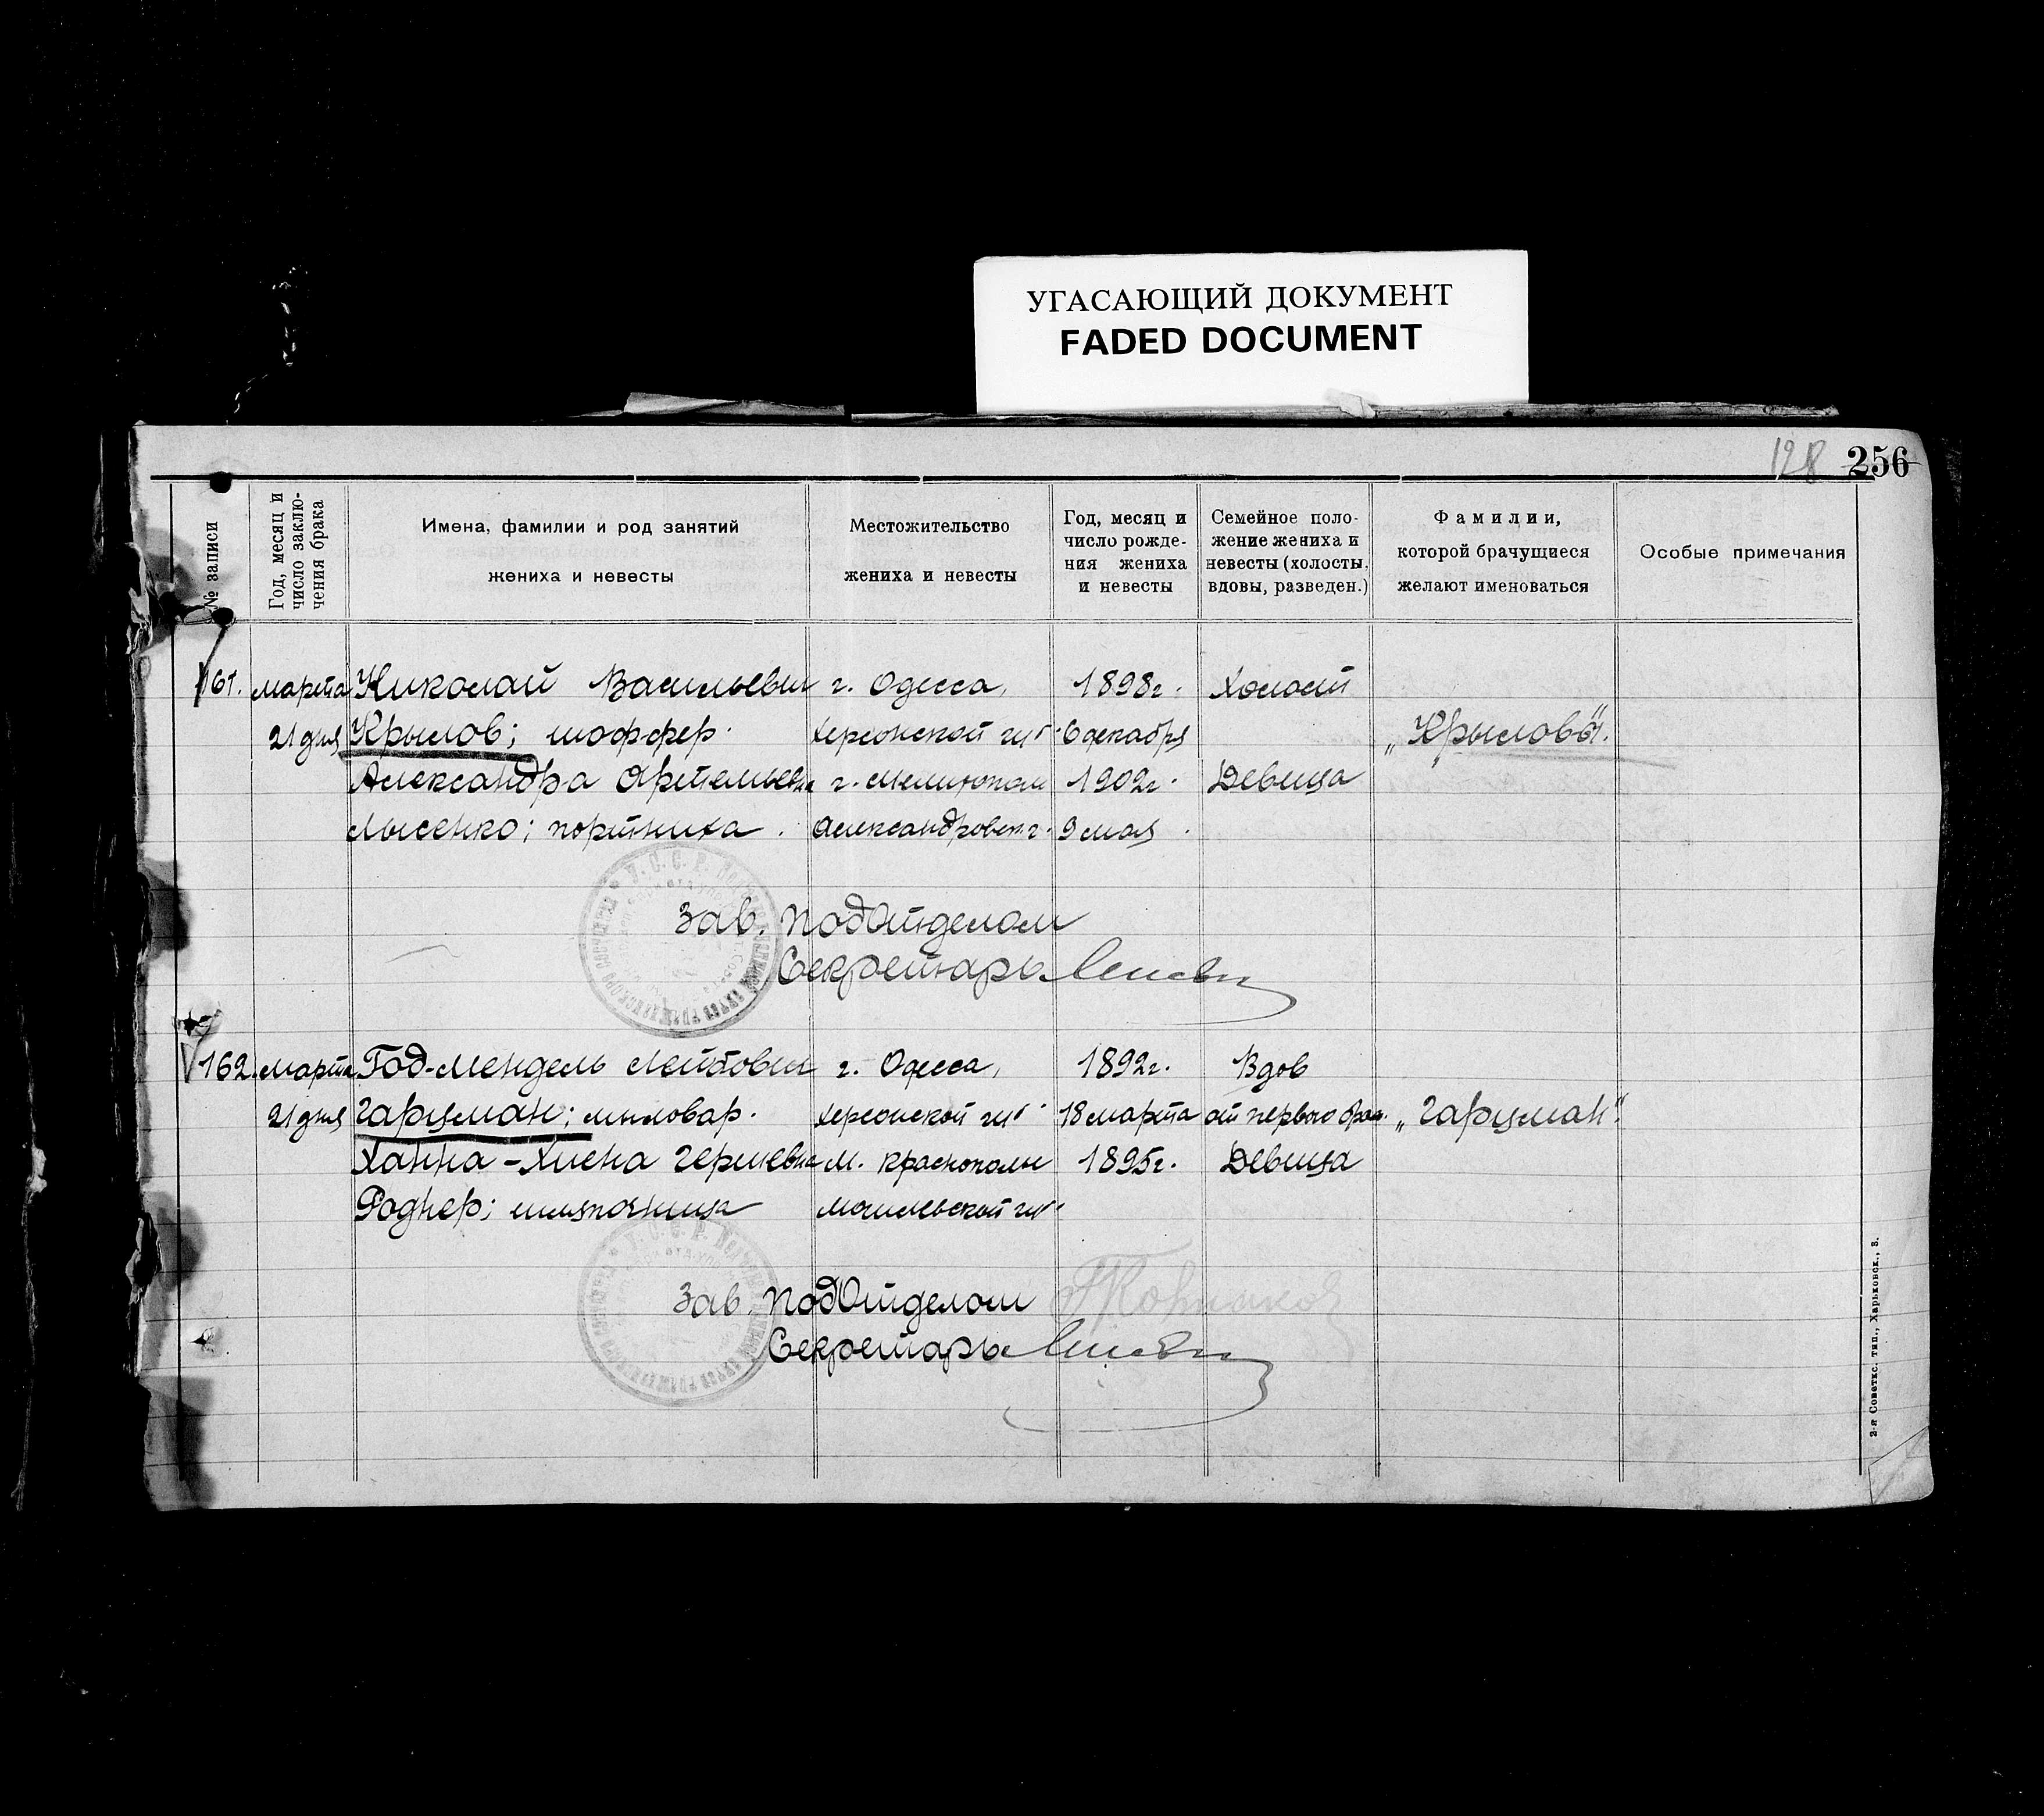 УГАСАЮЩИЙ ДОКУМЕНТ
FADED DOCUMENT
128 256
№ записи
Год, месяц и число заклю-чения брака
Имена, фамилии и род занятий
жениха и невесты
Местожительство
жениха и невесты
Год, месяц и
число рожде-
ния жениха
и невесты
Семейное поло-
жение жениха и
невесты (холосты,
вдовы, разведен.)
Фамилии,
которой брачущиеся
желают именоваться
Особые примечания
161. марта Николай Васильевич г. Одесса, 1898г. Холост
21 дня Крылов; шоффер. Херсонской губ. 6 декабря „Крыловы".
Александра Артемьевна г. Мелитополь 1902г. Девица
Лысенко; портниха. Александровск. г. 9 мая.
Зав. ПодОтделом
Секретарь
162. марта Год-Мендель Лейбович г. Одесса, 1892г. Вдов
21 дня Гарцман; мыловар. Херсонской губ. 18 марта от первого брак. „Гарцман".
Ханна-Хиена Гершевна м. Краснополье 1895г. Девица
Роднер; шляпочница Могилевской губ.
Зав. ПодОтделом
Секретарь
2-я Советск. тип., Харьковск., 3.